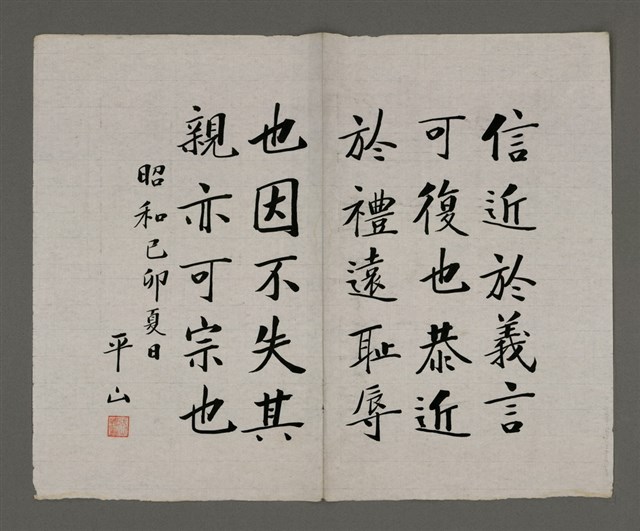 信近於義言
可復也恭近
於禮遠恥辱
也因不失其
親亦可宗也
昭和己卯夏日
平山